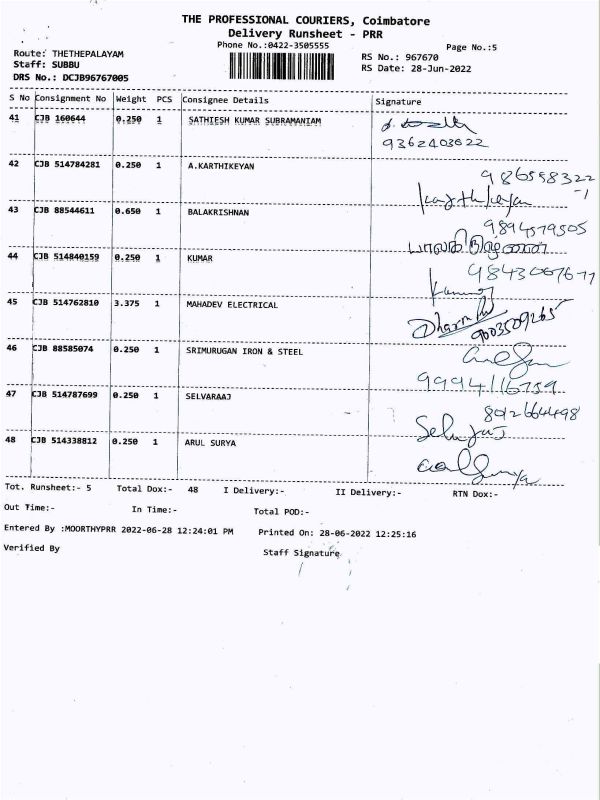 THE PROFESSIONAL COURIERS, Coimbatore
Delivery Runsheet - PRR
Phone No.:0422-3505555
Page No.:5
Route: THETHEPALAYAM
Staff: SUBBU
DRS No.: DCJB96767005
RS No.: 967670
RS Date: 28-Jun-2022
S No Consignment No Weight PCS Consignee Details Signature
41 CJB 160644 0.250 1 SATHIESH KUMAR SUBRAMANIAM
9362403622
42 CJB 514784281 0.250 1 A.KARTHIKEYAN
Karthikeyan
43 CJB 88544611 0.650 1 BALAKRISHNAN
9894579505
44 CJB 514840159 0.250 1 KUMAR
Kumar
45 CJB 514762810 3.375 1 MAHADEV ELECTRICAL
9003509265
46 CJB 88585074 0.250 1 SRIMURUGAN IRON & STEEL
9994116759
47 CJB 514787699 0.250 1 SELVARAAJ
8012664498
Selvaraj
48 CJB 514338812 0.250 1 ARUL SURYA
Tot. Runsheet:- 5 Total Dox:- 48 I Delivery:- II Delivery:- RTN Dox:-
Out Time:- In Time:- Total POD:-
Entered By :MOORTHYPRR 2022-06-28 12:24:01 PM Printed On: 28-06-2022 12:25:16
Verified By Staff Signature